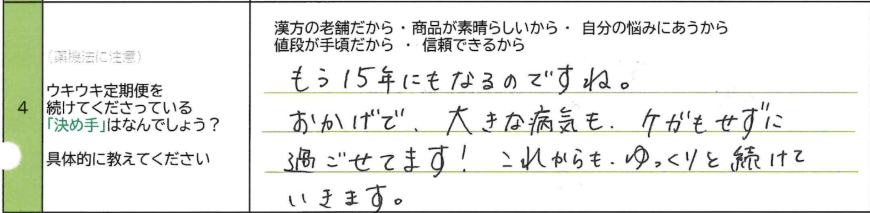 漢方の老舗だから ・ 商品が素晴らしいから ・ 自分の悩みにあうから
値段が手頃だから ・ 信頼できるから
(薬機法に注意)
4
ウキウキ定期便を
続けてくださっている
「決め手」はなんでしょう？
具体的に教えてください
もう15年にもなるのですね。
おかげで、大きな病気も、ケガもせずに
過ごせてます! これからも、ゆっくりと続けて
いきます。